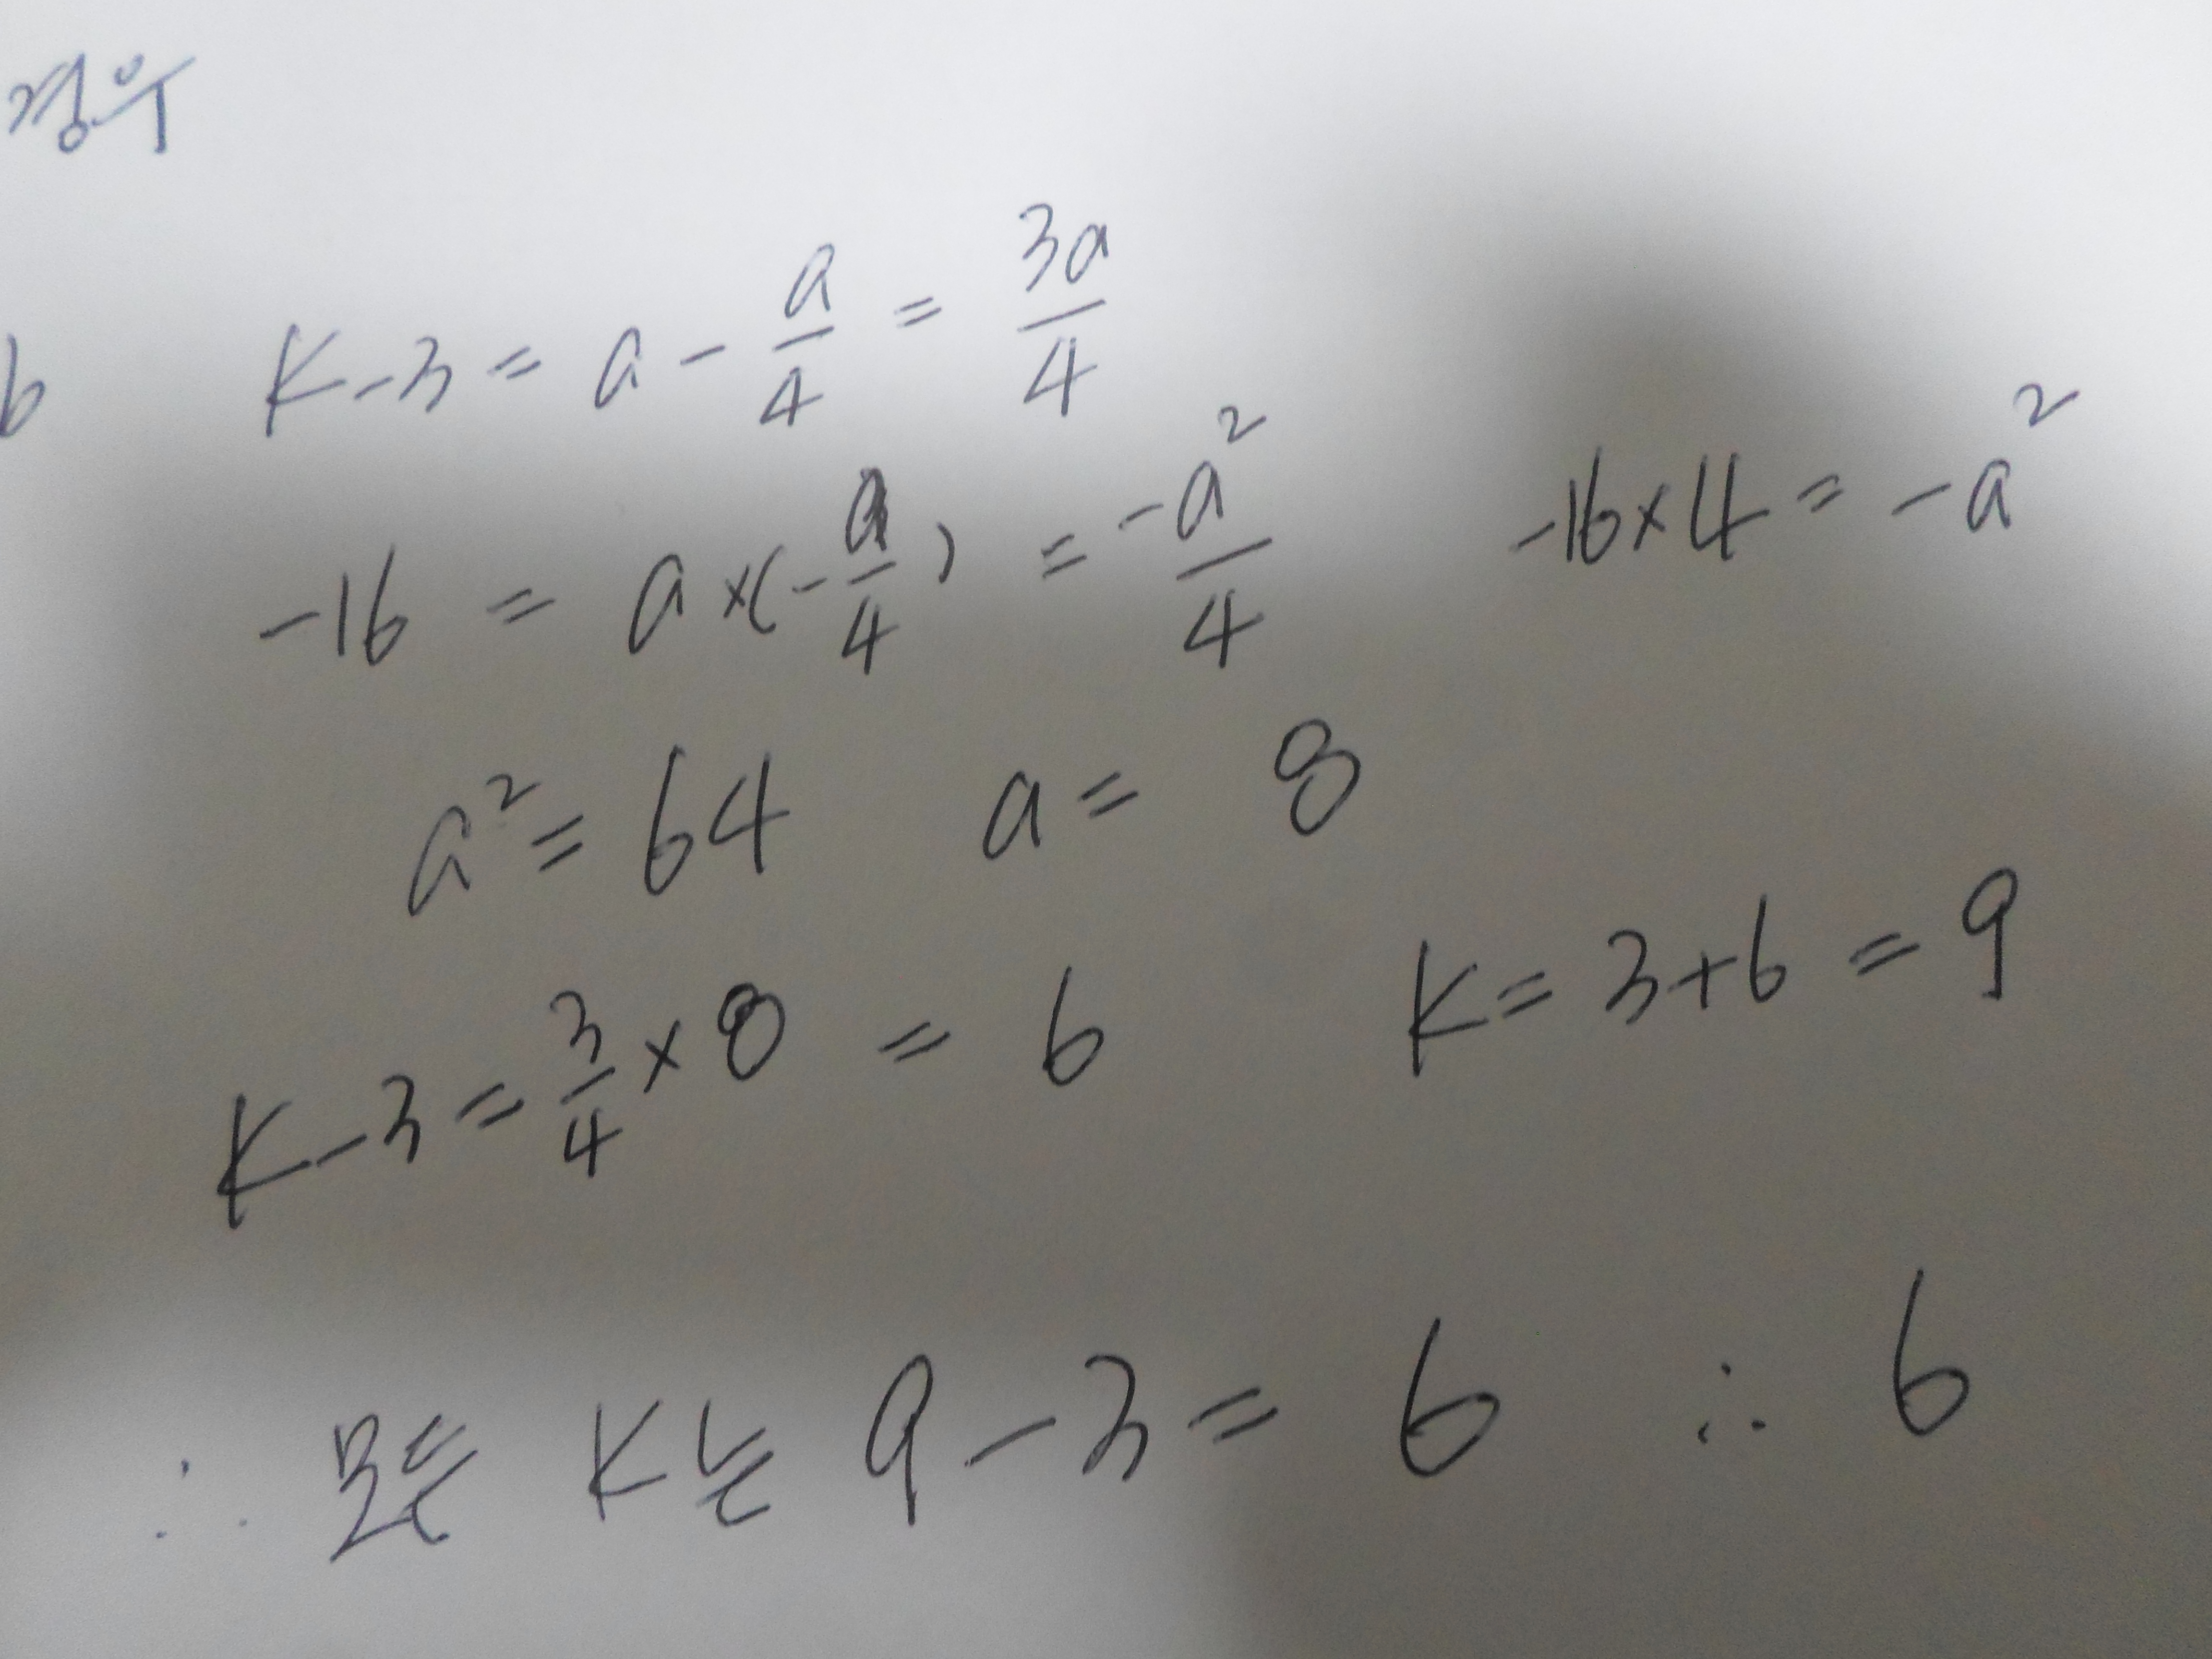 경우
b K-3 = a - a/4 = 3a/4
-16 = a×(-a/4) = -a²/4 -16×4 = -a²
a² = 64 a = 8
K-3 = 3/4 × 8 = 6 K = 3+6 = 9
∴ 모든 K는 9-3 = 6 ∴ 6